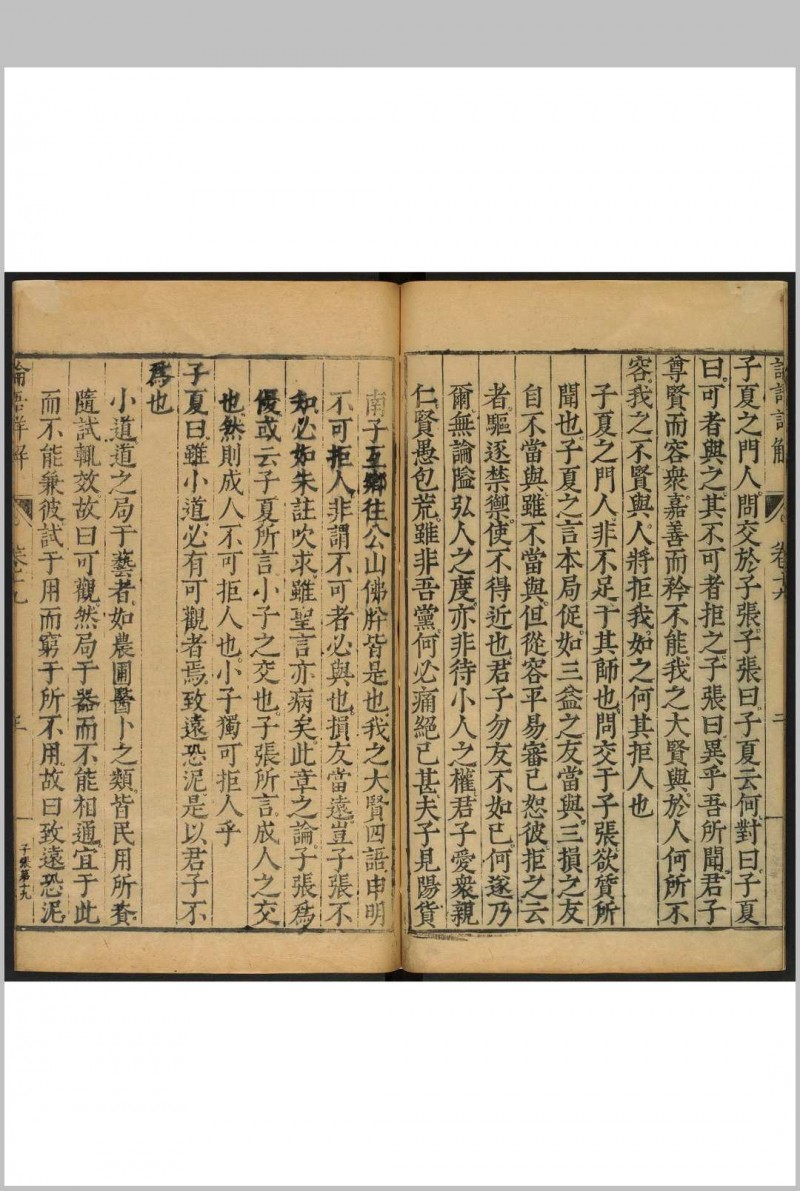 論語詳解
卷十九
子夏之門人問交於子張子張曰子夏云何對曰子夏
曰可者與之其不可者拒之子張曰異乎吾所聞君子
尊賢而容衆嘉善而矜不能我之大賢與於人何所不
容我之不賢與人將拒我如之何其拒人也
子夏之門人非不足于其師也問交于子張欲質所
聞也子夏之言本局促如三益之友當與三損之友
自不當與雖不當與但從容平易審己恕彼拒之云
者驅逐禁禦使不得近也君子勿友不如已何遂乃
爾無論隘弘人之度亦非待小人之權君子愛衆親
仁賢愚包荒雖非吾黨何必痛絕已甚夫子見陽貨
南子互鄉往公山佛肸皆是也我之大賢四語申明
不可拒人非謂不可者必與也損友當遠豈子張不
知必如朱註吹求雖聖言亦病矣此章之論子張爲
優或云子夏所言小子之交也子張所言成人之交
也然則成人不可拒人也小子獨可拒人乎
子夏曰雖小道必有可觀者焉致遠恐泥是以君子不
爲也
小道道之局于藝者如農圃醫卜之類皆民用所資
隨試輒效故曰可觀然局于器而不能相通宜于此
而不能兼彼試于用而窮于所不用故曰致遠恐泥
論語詳解
卷十九
三
子張第十九